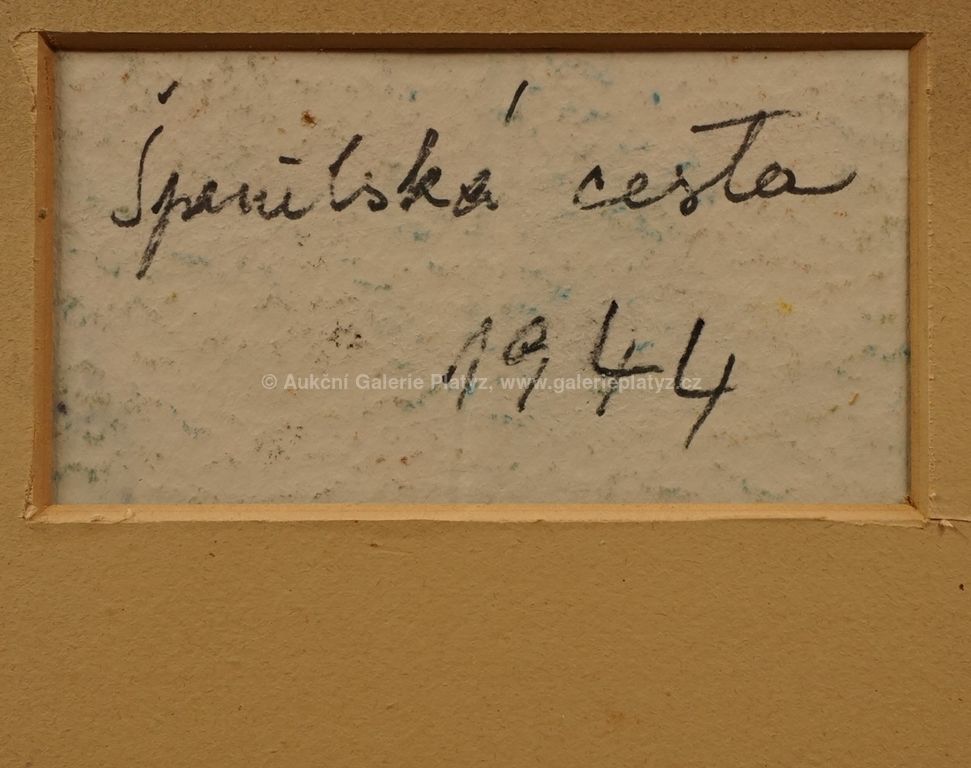 Španilská cesta
1944
© Aukční Galerie Platýz, www.galerieplatyz.cz